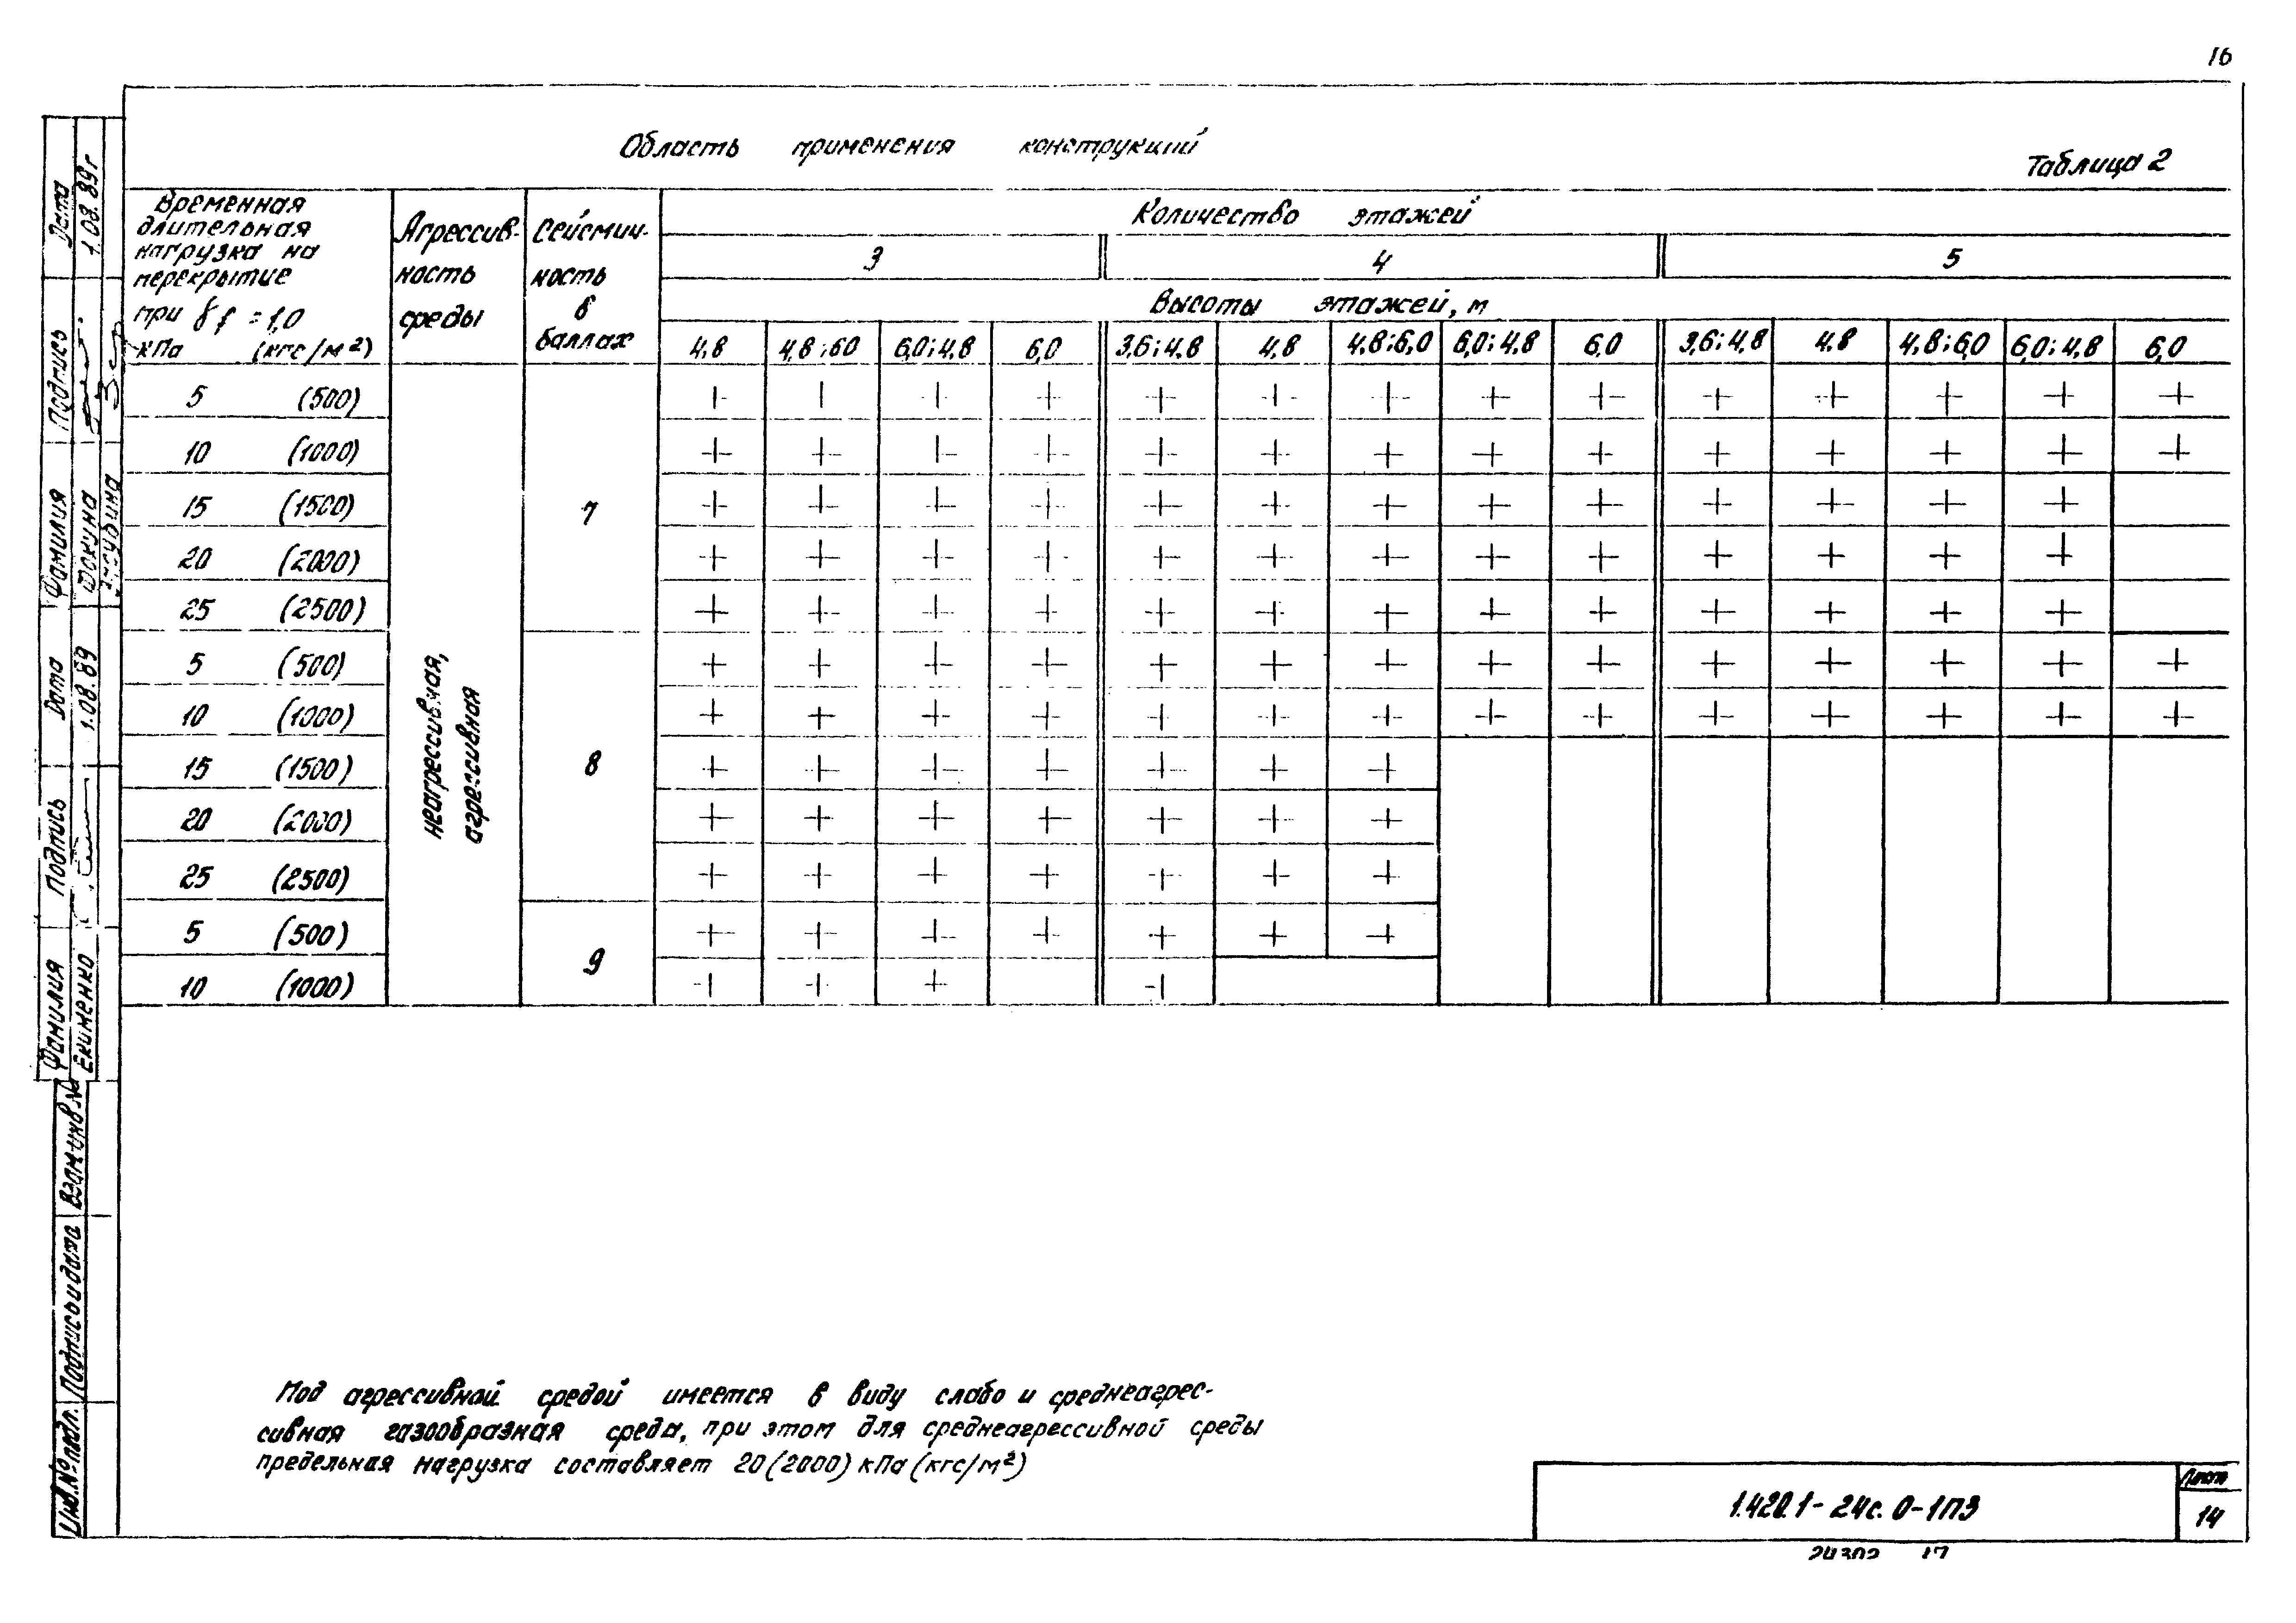 16
Область применения конструкций
Таблица 2
Временная длительная нагрузка на перекрытие при γf = 1,0 кПа (кгс/м²)
Агрессивность среды
Сейсмич-ность в баллах
Количество этажей
3 4 5
Высоты этажей, м
4,8 4,8; 6,0 6,0; 4,8 6,0 3,6; 4,8 4,8 4,8; 6,0 6,0; 4,8 6,0 3,6; 4,8 4,8 4,8; 6,0 6,0; 4,8 6,0
неагрессивная,
агрессивная
7
5 (500) + + + + + + + + + + + + + +
10 (1000) + + + + + + + + + + + + + +
15 (1500) + + + + + + + + + + + + +
20 (2000) + + + + + + + + + + + + +
25 (2500) + + + + + + + + + + + + +
8
5 (500) + + + + + + + + + + + + + +
10 (1000) + + + + + + + + + + + + + +
15 (1500) + + + + + + +
20 (2000) + + + + + + +
25 (2500) + + + + + + +
9
5 (500) + + + + + + +
10 (1000) + + + +
Под агрессивной средой имеется в виду слабо и среднеагрес-
сивная газообразная среда, при этом для среднеагрессивной среды
предельная нагрузка составляет 20 (2000) кПа (кгс/м²)
1.420.1-24с. 0-1ПЗ
Лист
14
24302 17
Фамилия Подпись Дата Фамилия Подпись Дата
Екименко 1.08.89 Фокина 1.08.89г
Инв.№ подл. Подпись и дата Взам.инв.№